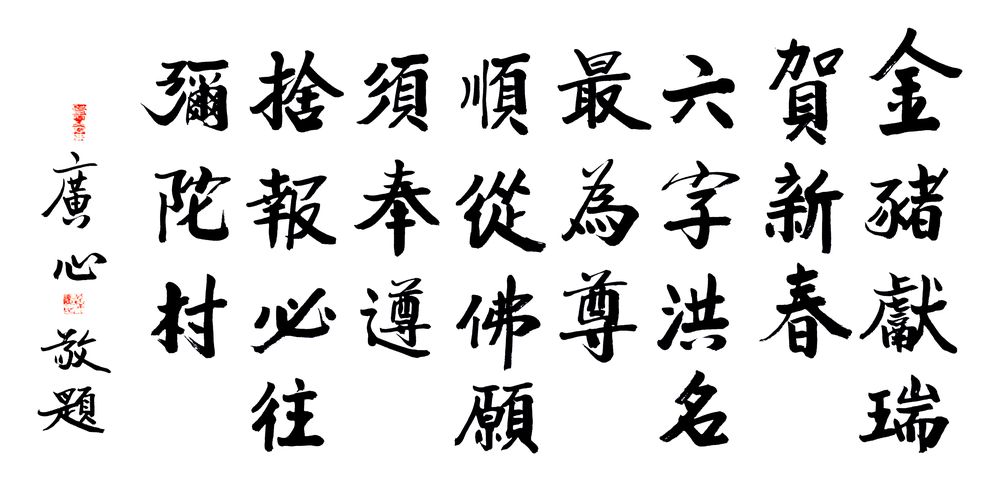 金豬獻瑞
賀新春
六字洪名
最為尊
順從佛願
須奉遵
捨報必往
彌陀村
廣心敬題